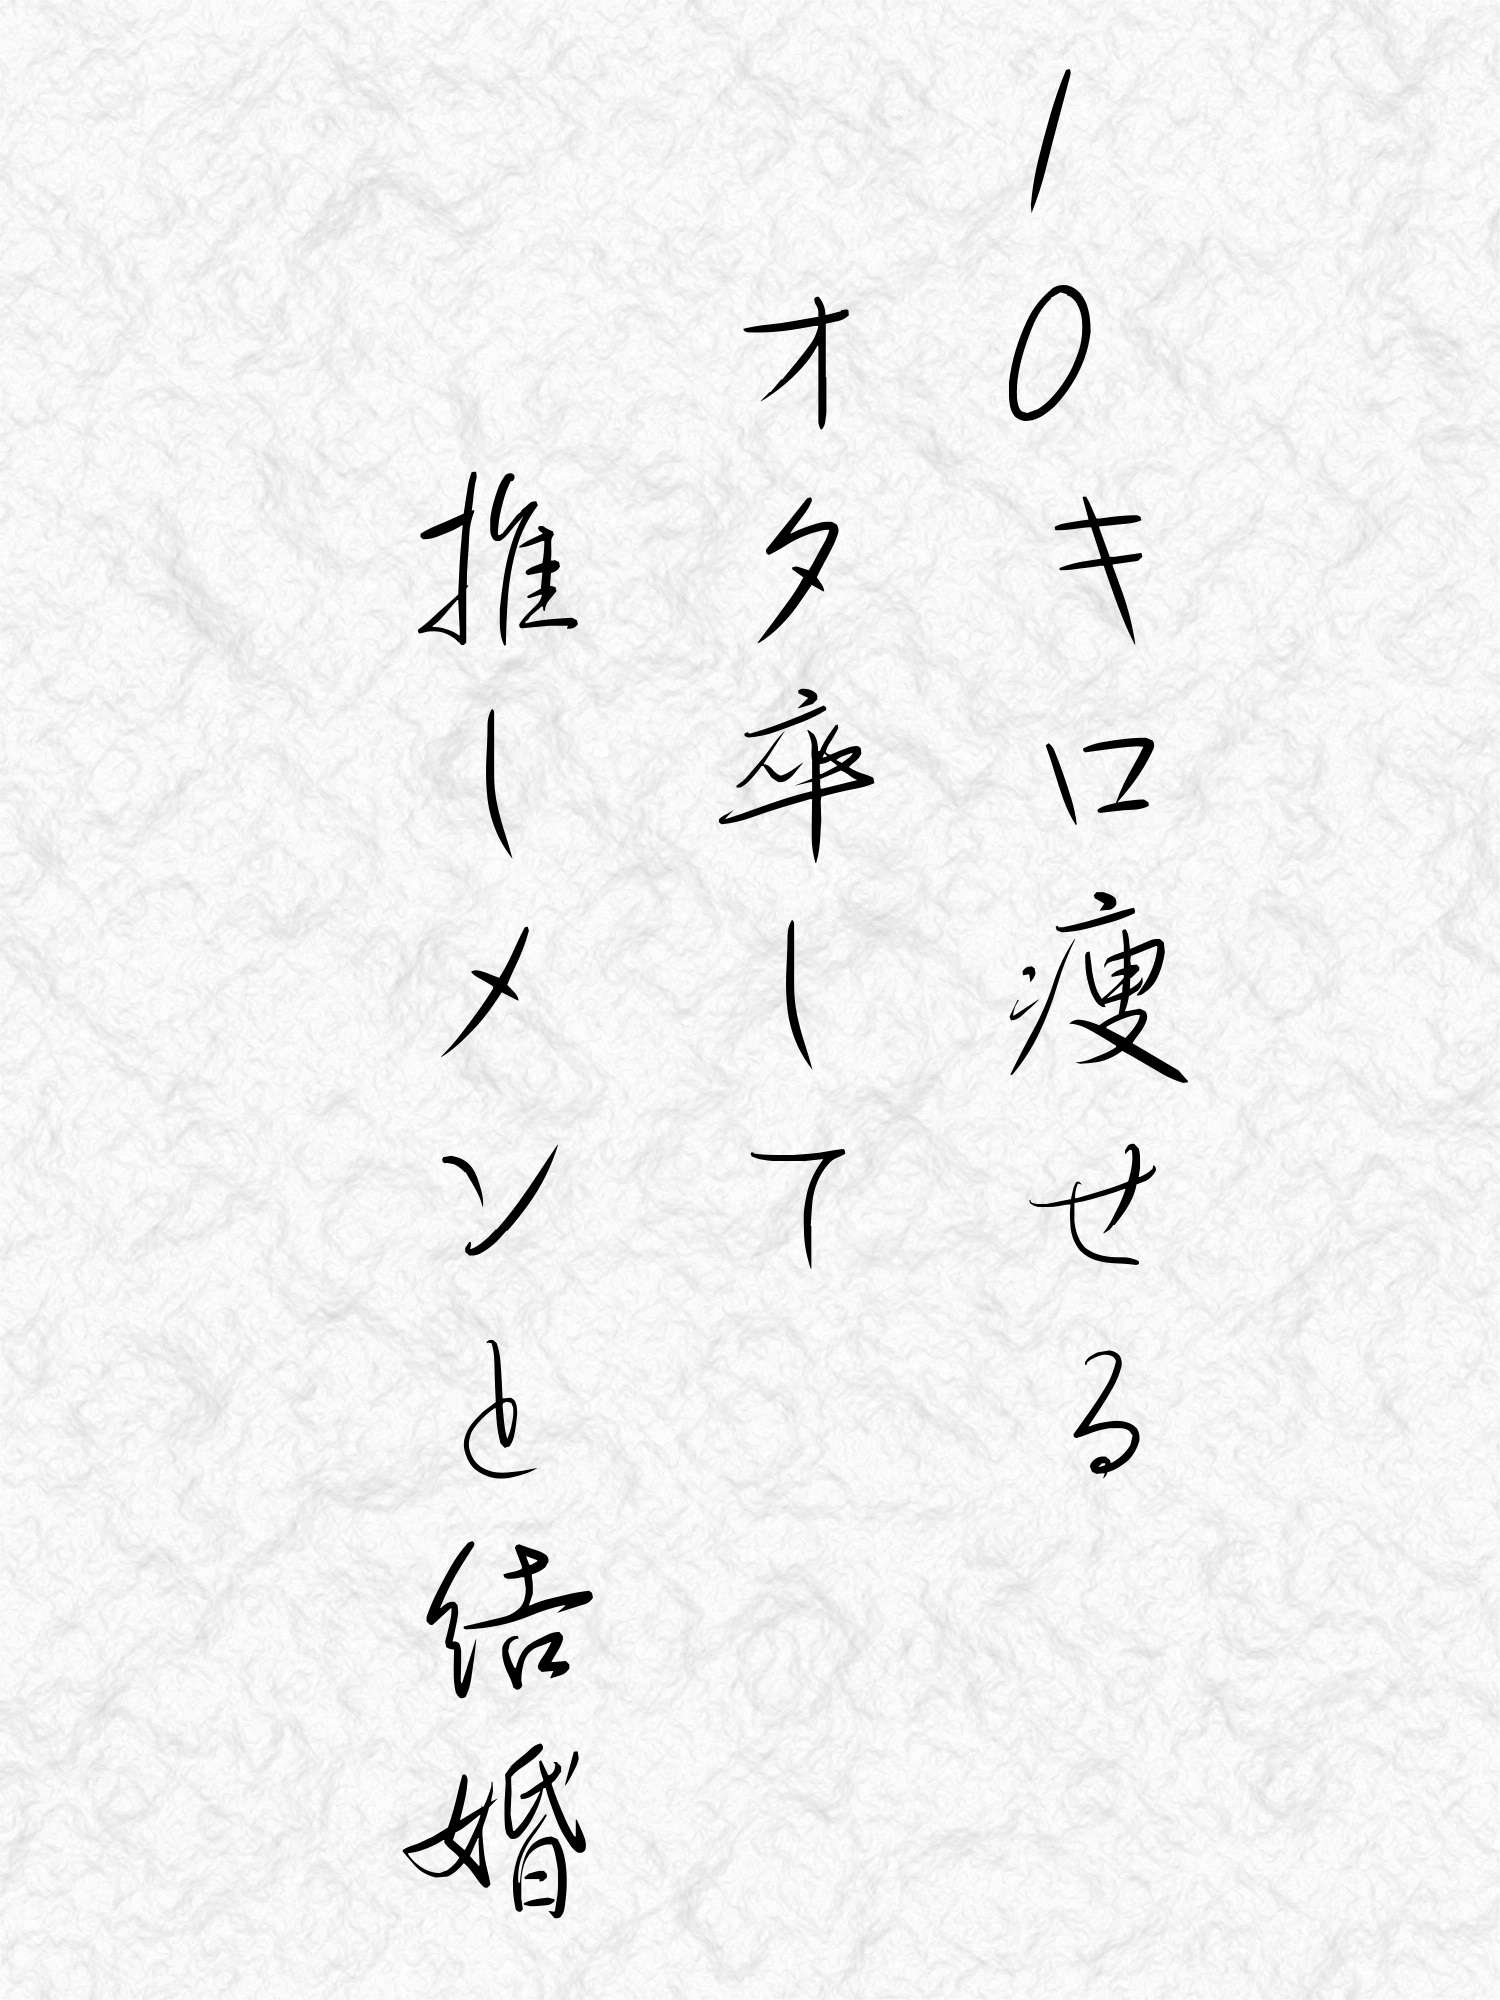 10キロ痩せる
オタ卒して
推しメンと結婚